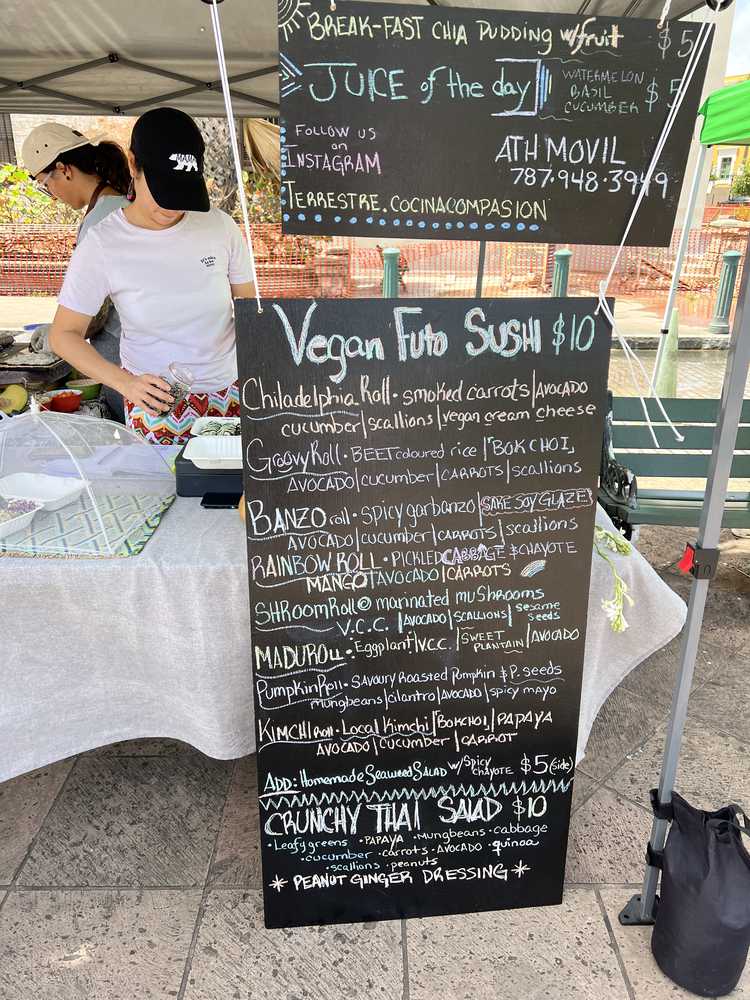 BREAK-FAST CHIA PUDDING w/fruit $5
JUICE of the day WATERMELON BASIL CUCUMBER $5
FOLLOW US on INSTAGRAM
ATH MOVIL
TERRESTRE.COCINACOMPASION
Vegan Futo SUSHI $10
Chiladelphia Roll • smoked carrots | AVOCADO
cucumber | scallions | vegan cream cheese
Groovy Roll • BEET coloured rice | BOK CHOI,
AVOCADO | cucumber | CARROTS | scallions
BANZO roll • spicy garbanzo | SAKE SOY GLAZE
AVOCADO | cucumber | CARROTS | scallions
RAINBOW ROLL • PICKLED CABBAGE & CHAYOTE
MANGO | AVOCADO | CARROTS
SHROOM Roll marinated muShrooms
V.C.C. | AVOCADO | SCALLIONS | sesame seeds
MADUROLL: Eggplant | V.C.C. | SWEET PLANTAIN | AVOCADO
Pumpkin Roll • SAVOURY Roasted Pumpkin & P. seeds
mungbeans | cilantro | AVOCADO | spicy mayo
KIMCHI ROLL • Local Kimchi | BOKCHOI, | PAPAYA
AVOCADO | CUCUMBER | CARROT
ADD: Homemade Seaweed Salad w/ SPICY CHAYOTE $5 (side)
CRUNCHY THAI SALAD $10
• Leafy greens • PAPAYA • Mungbeans • cabbage
• cucumber • carrots • AVOCADO • quinoa
• scallions • peanuts
* PEANUT GINGER DRESSING *